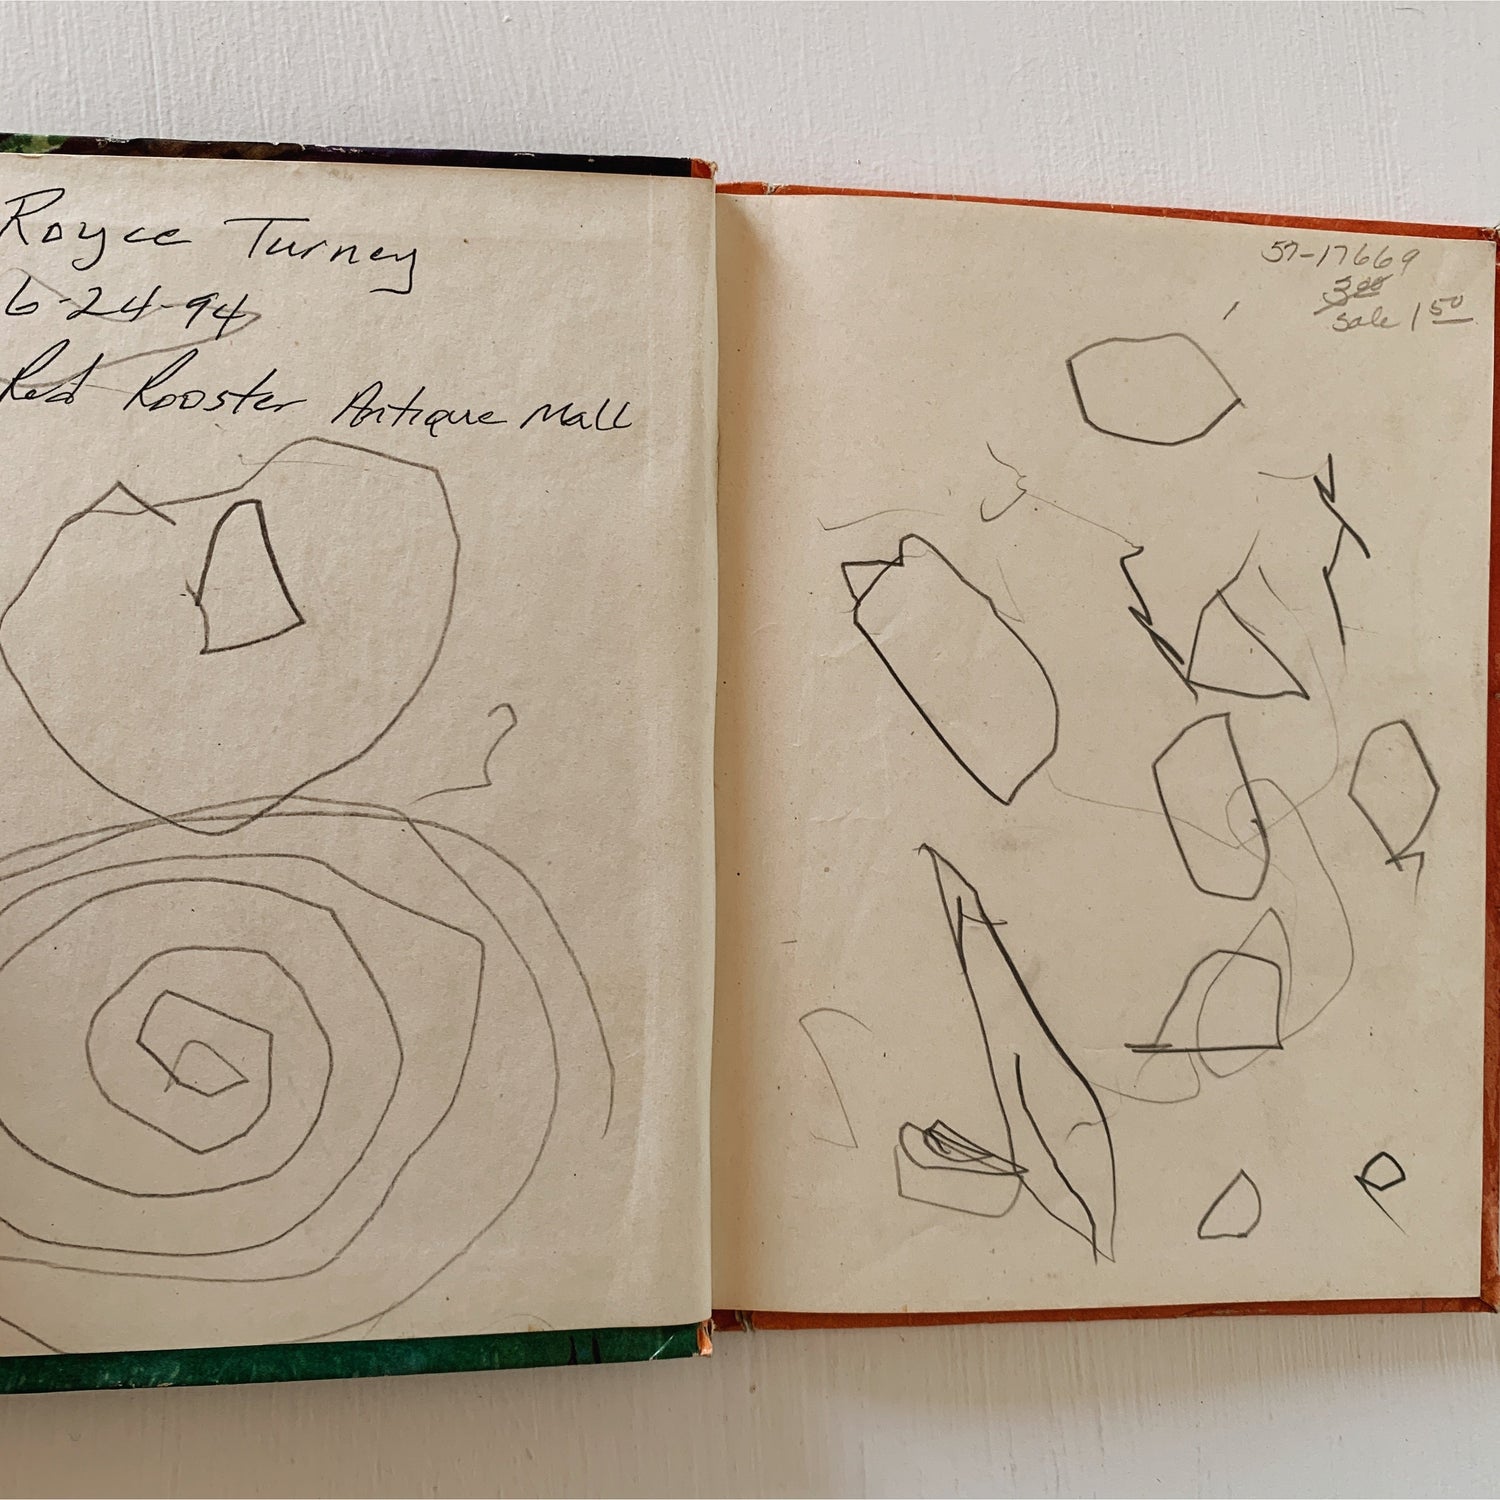 Royce Turney
6-24-94
Red Rooster Antique Mall
57-17669
3 00
Sale 1 50